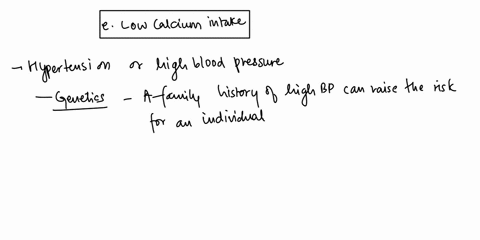 e. Low calcium intake
→ Hypertension or high blood pressure
— Genetics - A family history of high BP can raise the risk
for an individual